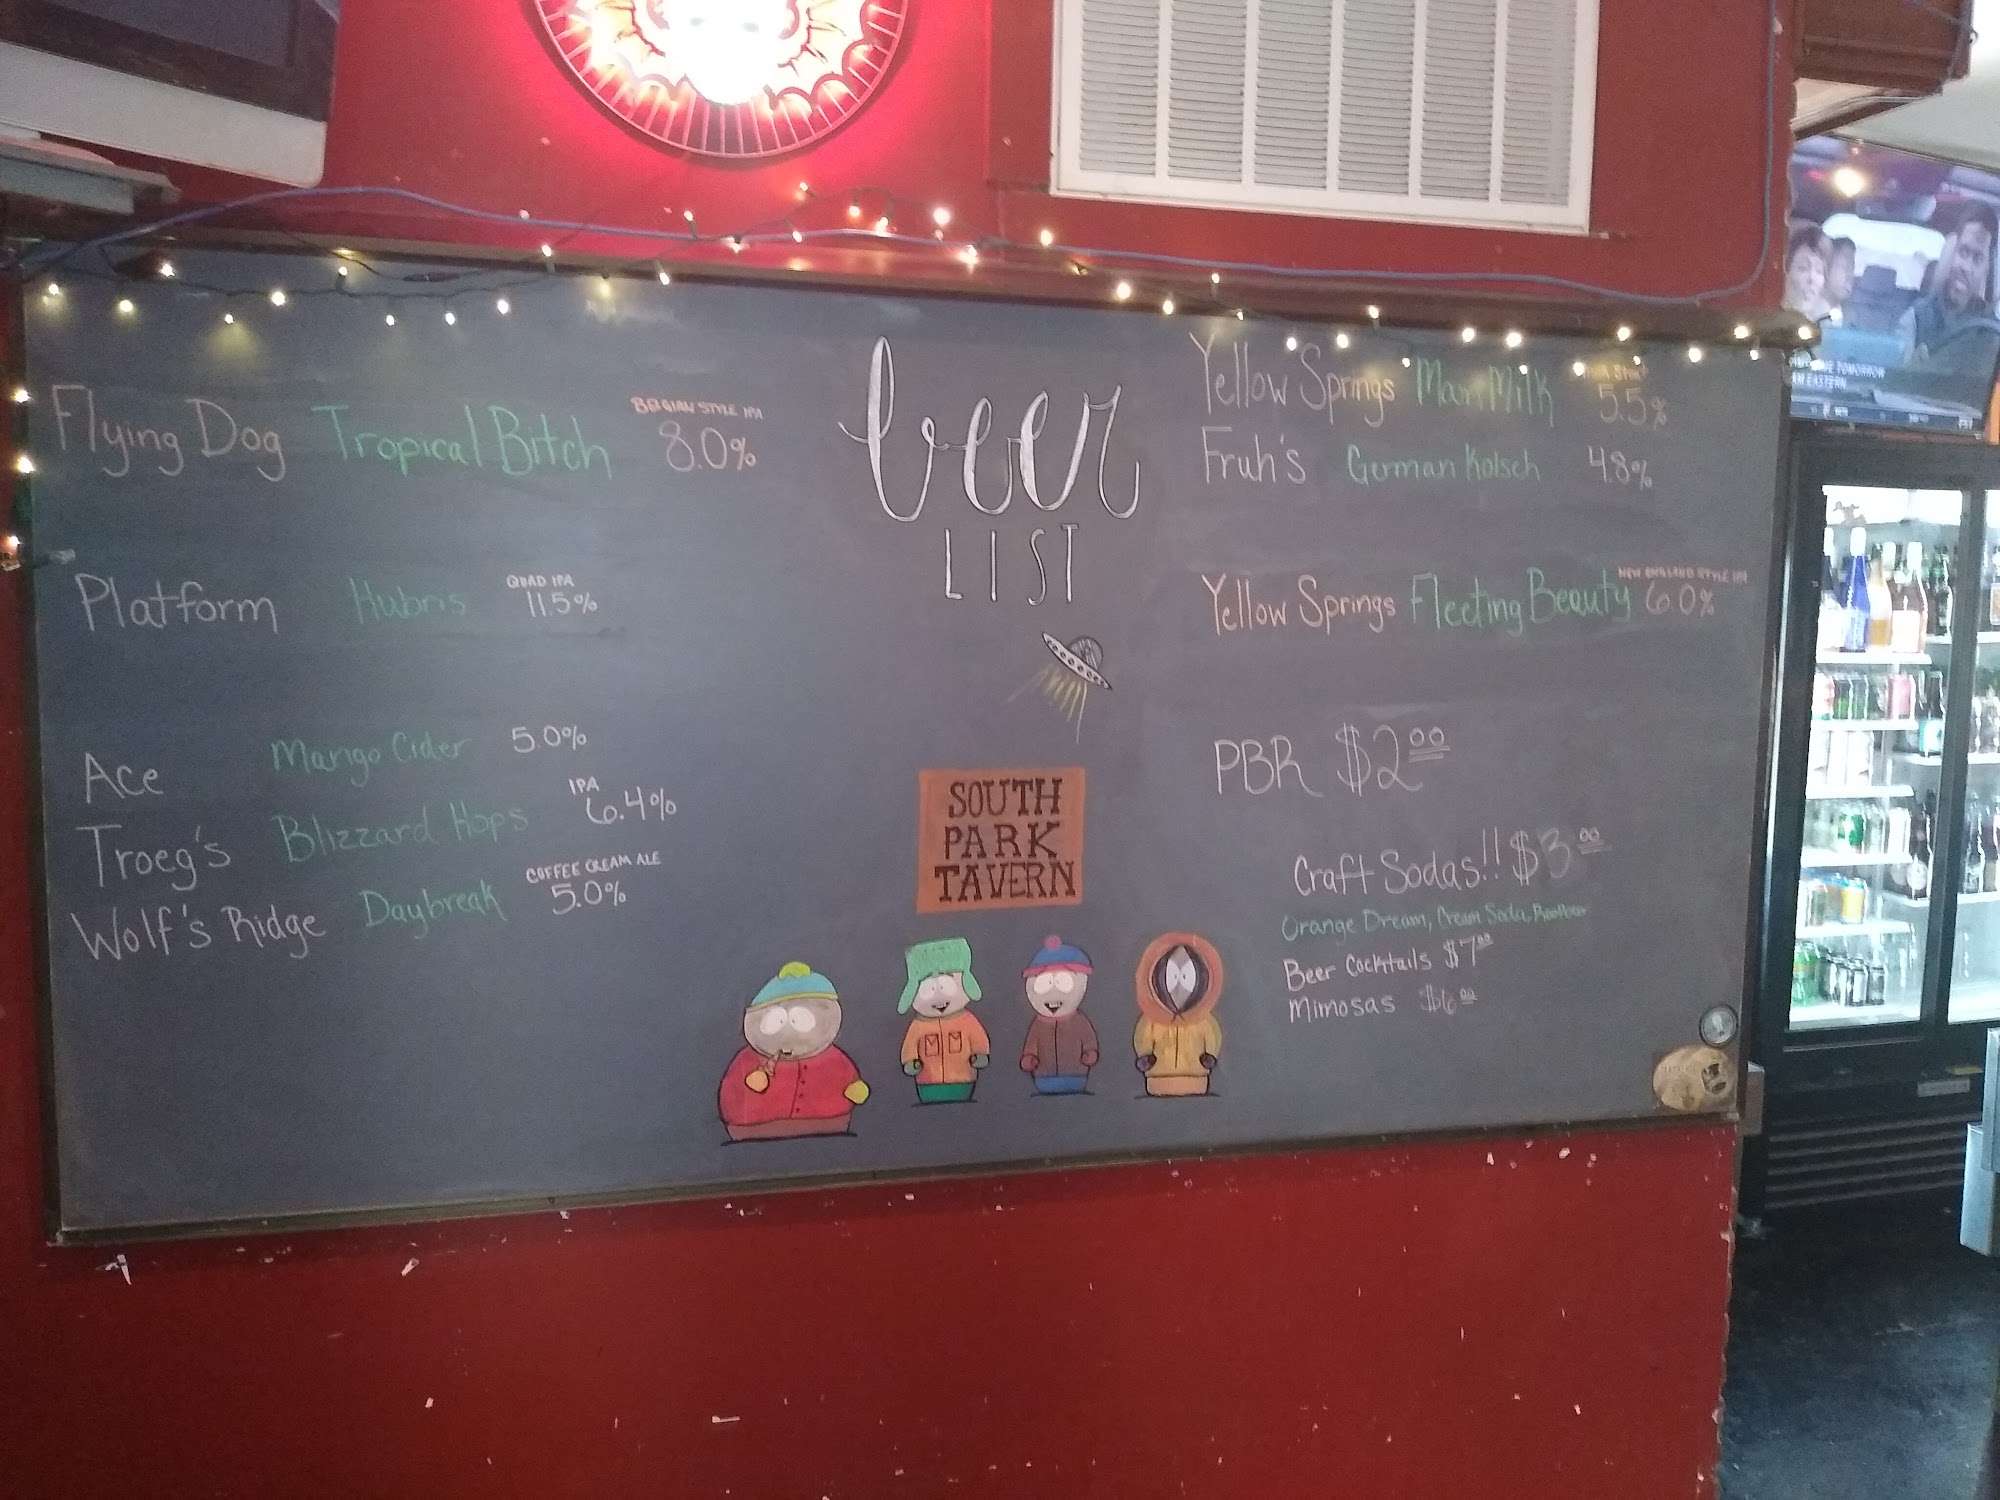 Flying Dog Tropical Bitch BELGIAN STYLE IPA 8.0%
Platform Hubris QUAD IPA 11.5%
Ace Mango Cider 5.0%
Troeg's Blizzard Hops IPA 6.4%
Wolf's Ridge Daybreak COFFEE CREAM ALE 5.0%
beer
LIST
SOUTH
PARK
TAVERN
Yellow Springs Man Milk 5.5%
Fruh's German Kolsch 4.8%
Yellow Springs Fleeting Beauty NEW ENGLAND STYLE IPA 6.0%
PBR $2.00
Craft Sodas!! $3.00
Orange Dream, Cream Soda, Rootbeer
Beer Cocktails $7.00
Mimosas $6.00
TOMORROW
EASTERN